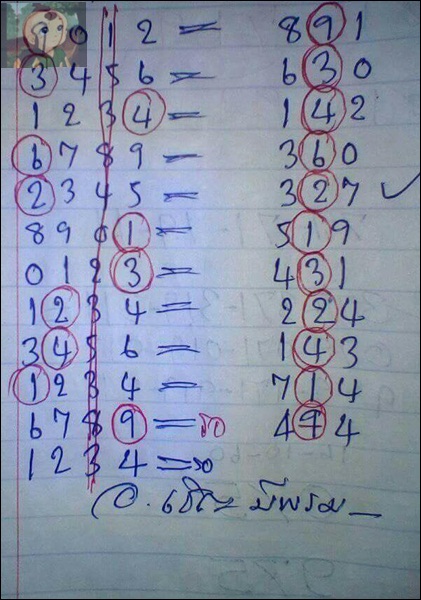 9 0 1 2 = 8 9 1
3 4 5 6 = 6 3 0
1 2 3 4 = 1 4 2
6 7 8 9 = 3 6 0
2 3 4 5 = 3 2 7 ✓
8 9 0 1 = 5 1 9
0 1 2 3 = 4 3 1
1 2 3 4 = 2 2 4
3 4 5 6 = 1 4 3
1 2 3 4 = 7 1 4
6 7 8 9 = 50 4 9 4
1 2 3 4 = 50
มีพรม